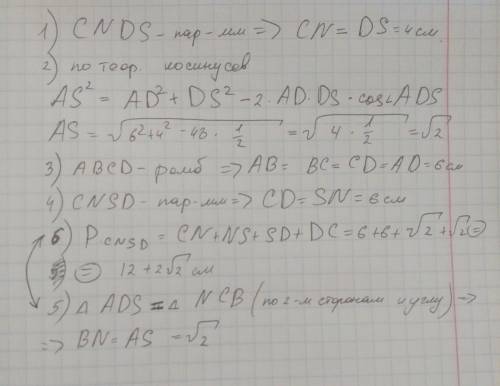 1) CNDS - пар-мм => CN = DS = 4 см.
2) по теор. косинусов
AS² = AD² + DS² - 2·AD·DS·cos∠ADS
AS = √(6² + 4² - 48·1/2) = √(4·1/2) = √2
3) ABCD - ромб => AB = BC = CD = AD = 6 см
4) CNSD - пар-мм => CD = SN = 6 см
6) P CNSD = CN + NS + SD + DC = 6 + 6 + √2 + √2 (=)
(=) 12 + 2√2 см
5) △ ADS = △ NCB (по 2-м сторонам и углу) =>
=> BN = AS = √2